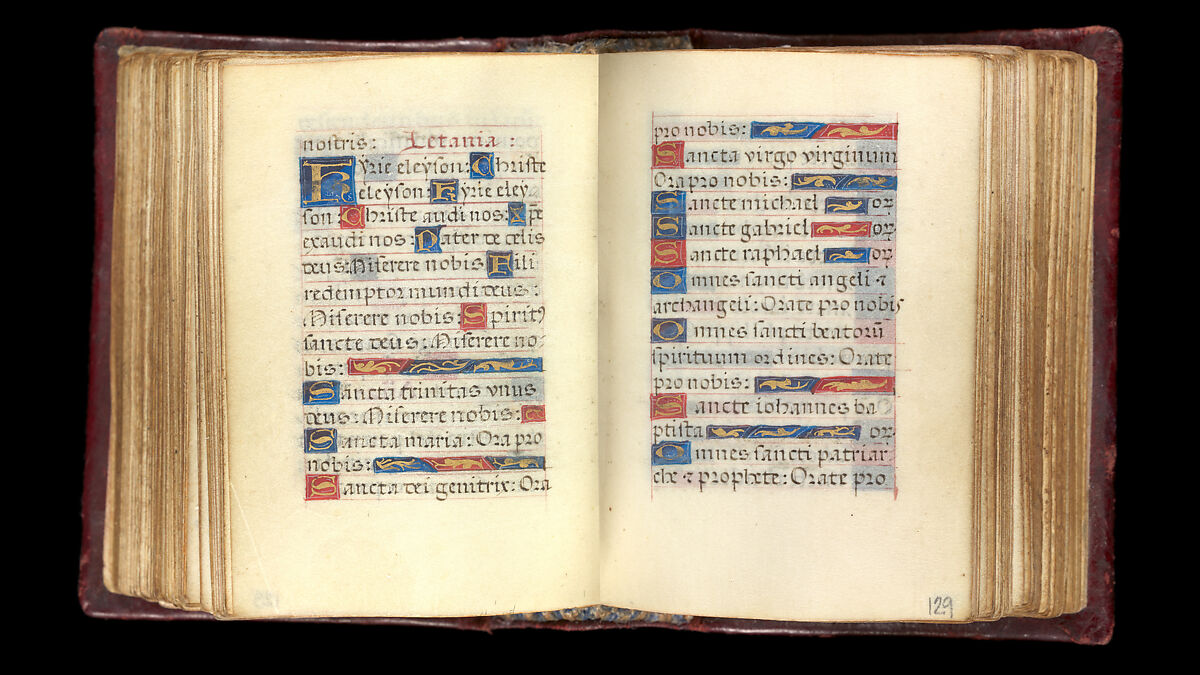 nostris: Letania:
Kyrie eleyson: Christe
eleyson: Kyrie eley
son: Christe audi nos: xp̄e
exaudi nos: Pater de celis
deus: Miserere nobis Fili
redemptor mundi deus:
Miserere nobis: Spiritꝰ
sancte deus: Miserere no
bis:
Sancta trinitas vnus
deus: Miserere nobis:
Sancta maria: Ora pro
nobis:
Sancta dei genitrix: Ora
pro nobis:
Sancta virgo virginum
Ora pro nobis:
Sancte michael oꝝ
Sancte gabriel oꝝ
Sancte raphael oꝝ
Omnes sancti angeli ⁊
archangeli: Orate pro nobis
Omnes sancti beatorū
spirituum ordines: Orate
pro nobis:
Sancte iohannes ba
ptista oꝝ
Omnes sancti patriar
che ⁊ prophete: Orate pro
129